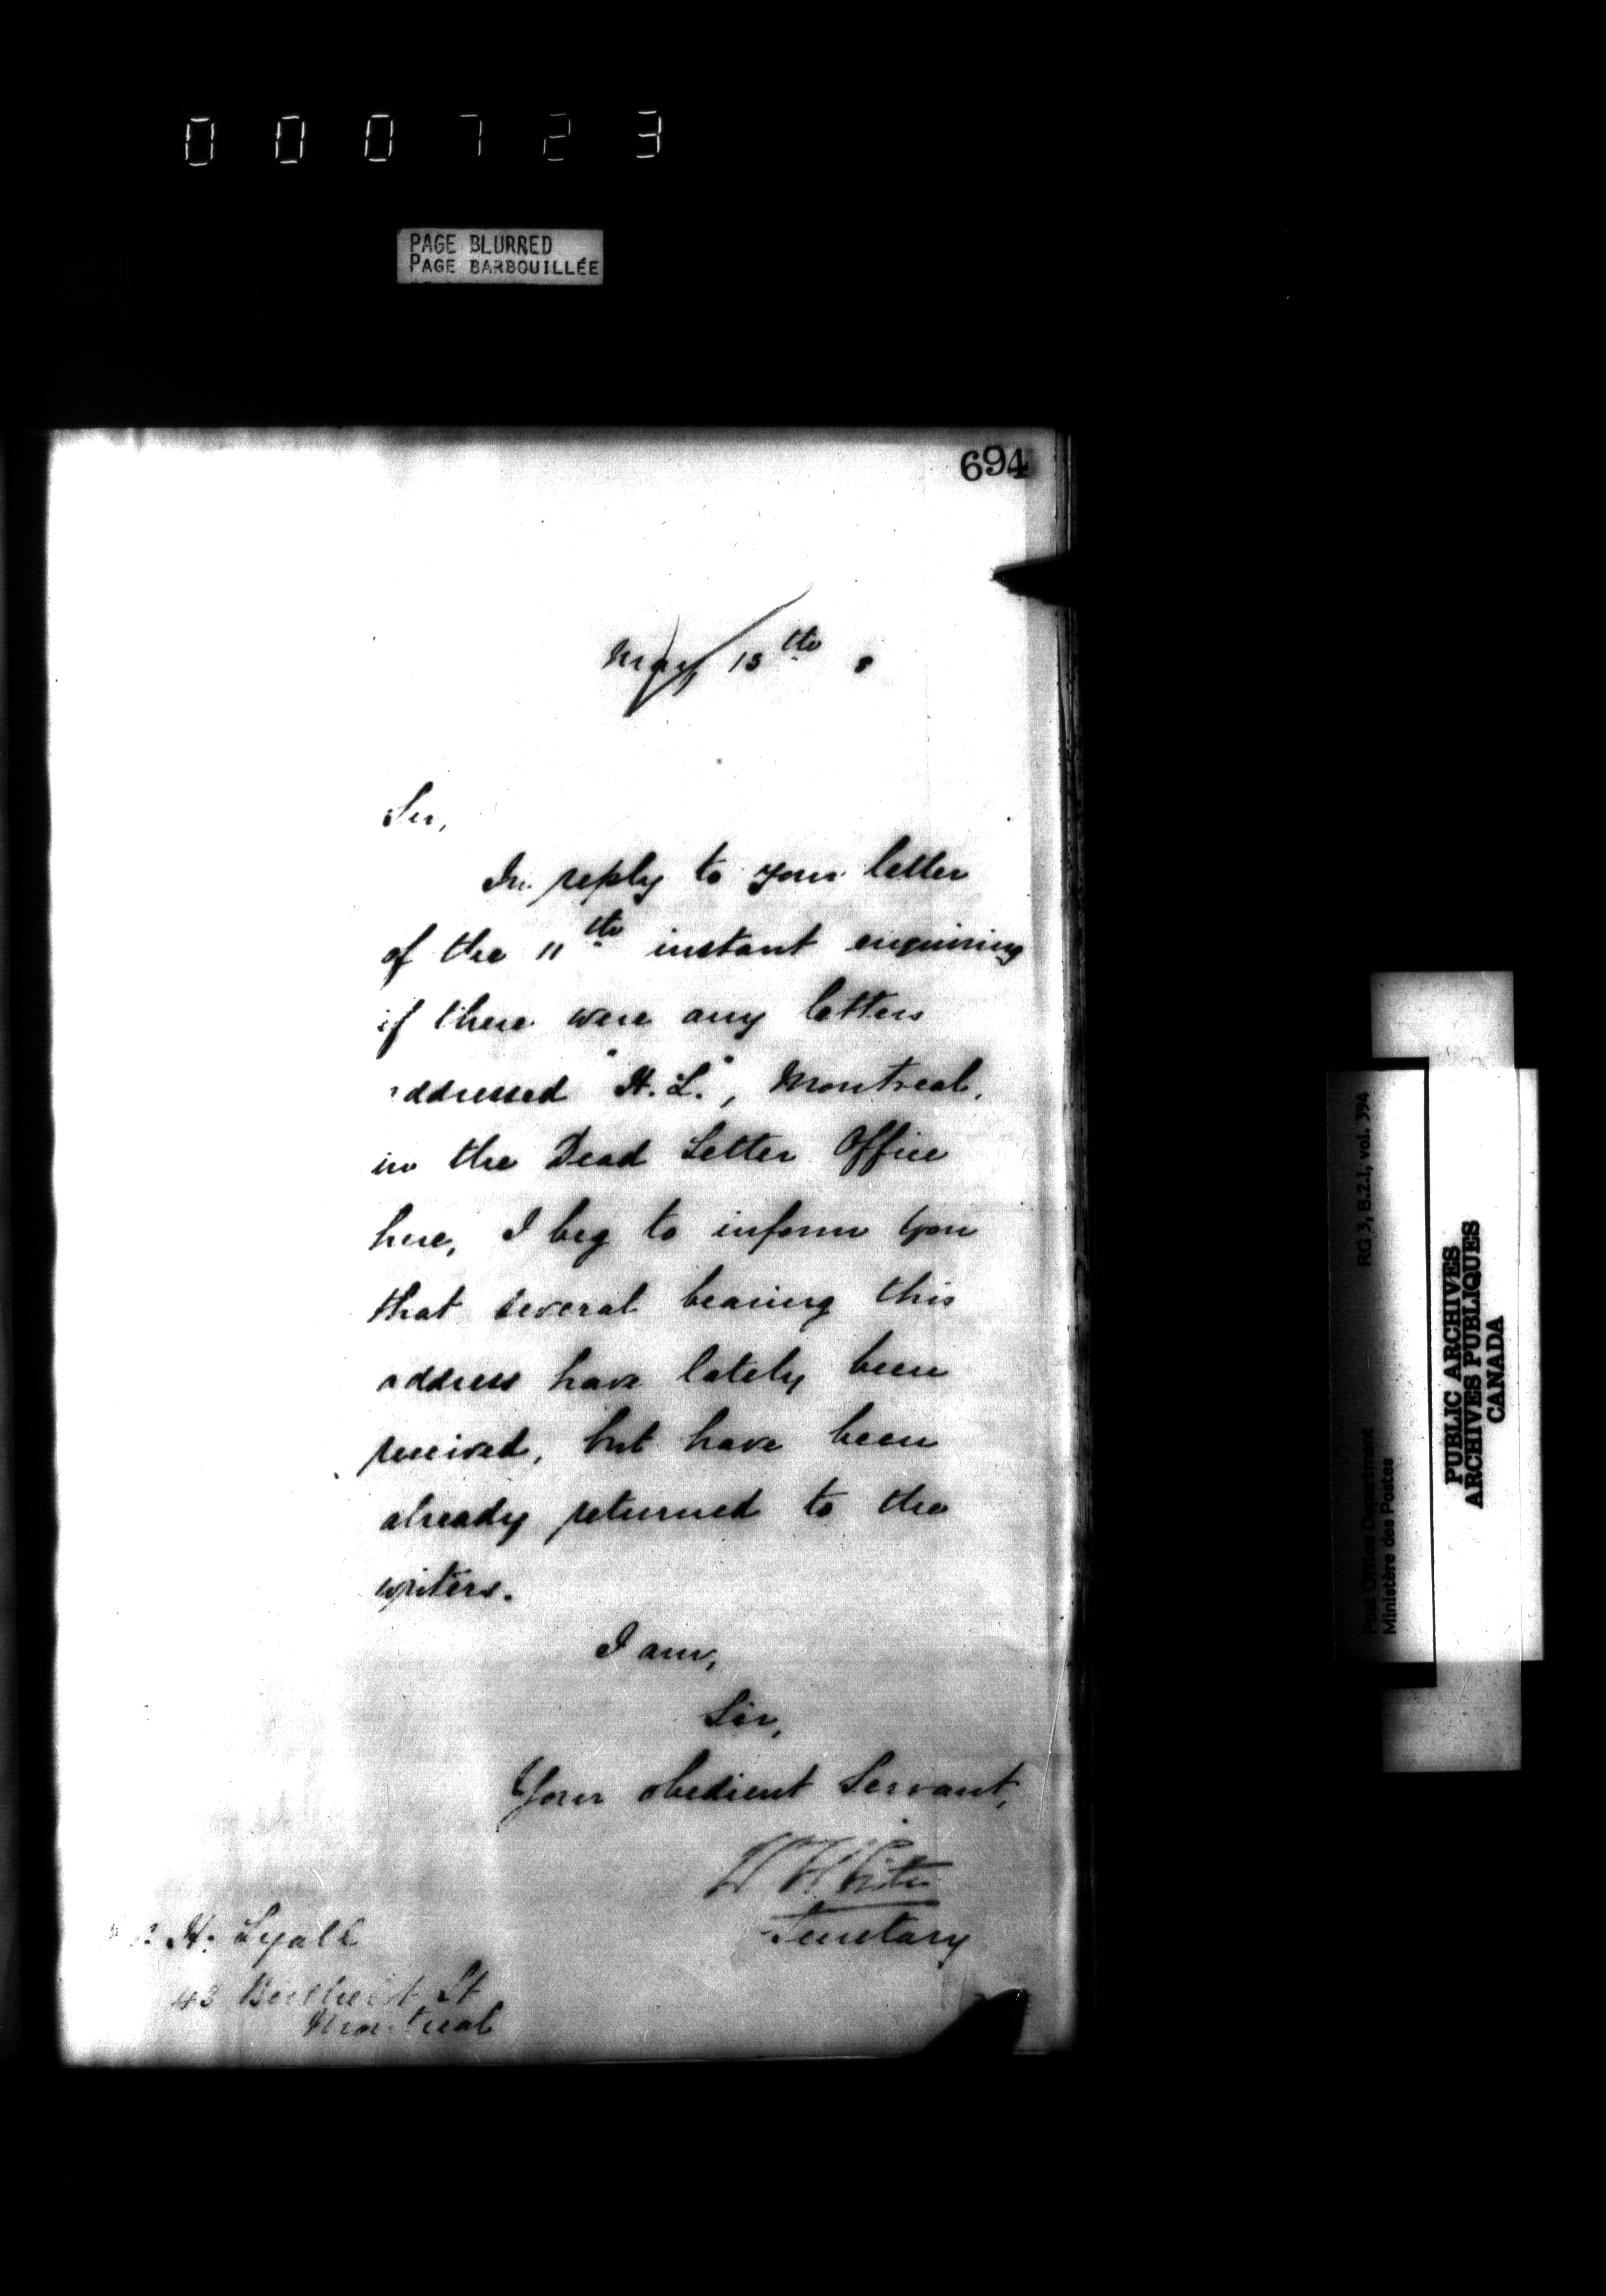 000723
PAGE BLURRED
PAGE BARBOUILLÉE
694
May 13th
Sir,
In reply to your letter
of the 11th instant enquiring
if there were any letters
addressed "H.L.", Montreal,
in the Dead Letter Office
here, I beg to inform you
that several bearing this
address have lately been
received, but have been
already returned to the
writers.
I am,
Sir,
Your obedient Servant,
W White
Secretary
H. Lyall
43 St
Montreal
RG 3, B.2.1, vol. 394
Post Office Department
Ministère des Postes
PUBLIC ARCHIVES
ARCHIVES PUBLIQUES
CANADA